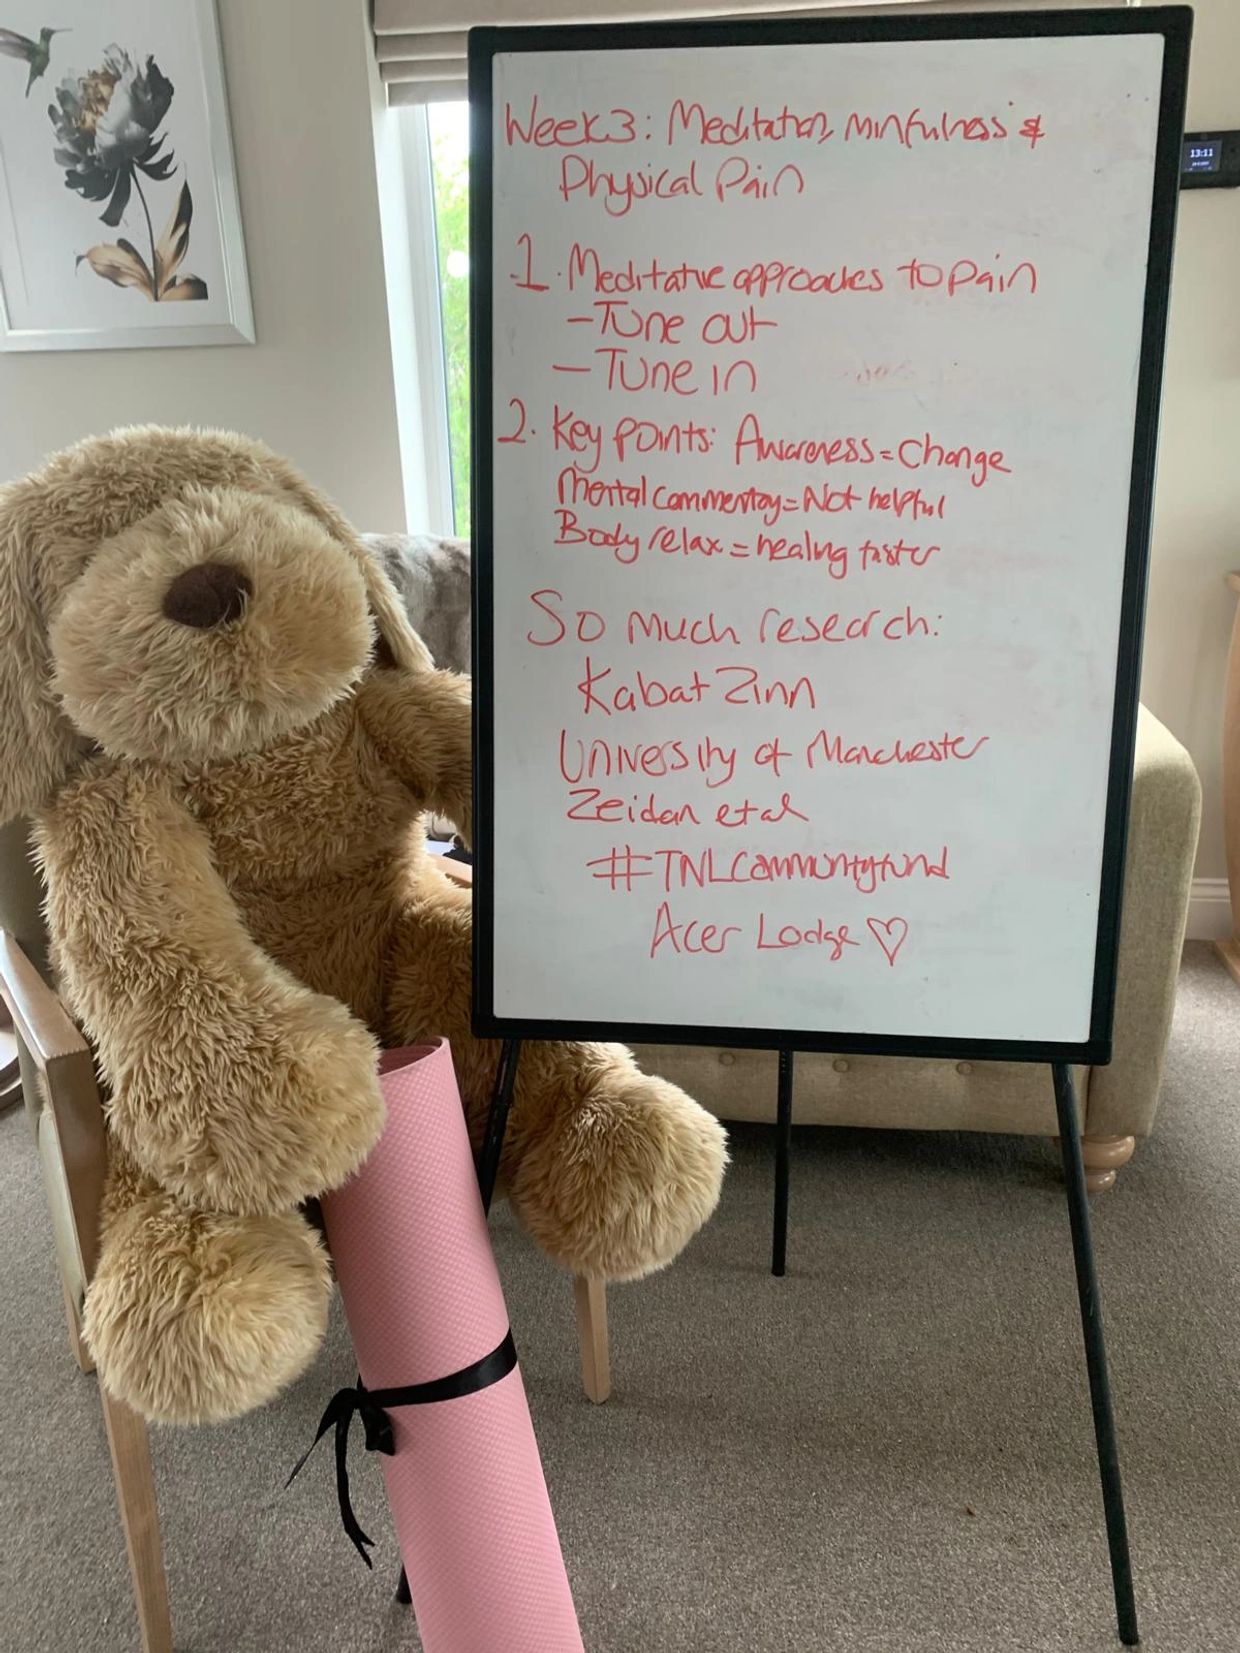 Week 3: Meditation, minfulness &
Physical Pain
1. Meditative approaches to pain
- Tune out
- Tune in
2. Key points: Awareness = Change
Mental commentary = Not helpful
Body relax = healing faster
So much research:
Kabat Zinn
University of Manchester
Zeidan et al
#TNLCommunityfund
Acer Lodge ♡
13:11